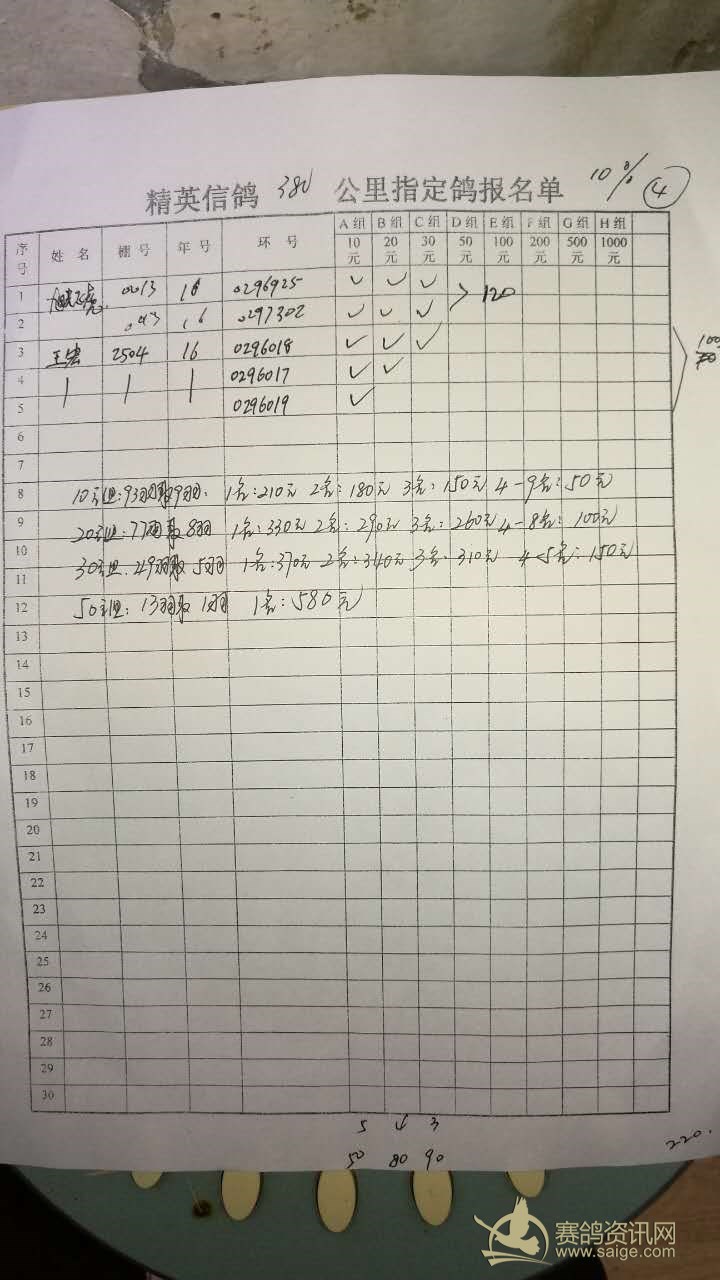 精英信鸽 380 公里指定鸽报名单 10% ④
序号 姓名 棚号 年号 环号 A组 10元 B组 20元 C组 30元 D组 50元 E组 100元 F组 200元 G组 500元 H组 1000元
1 0013 16 0296925 ✓ ✓ ✓ 120
2 16 0297302 ✓ ✓ ✓
3 王宏 2504 16 0296018 ✓ ✓ ✓
4 0296017 ✓ ✓
5 0296019 ✓
6
7
8 10元组:93羽取9羽. 1名:210元 2名:180元 3名:150元 4-9名:50元
9 20元组:77羽取8羽 1名:330元 2名:290元 3名:260元 4-8名:100元
10
11 30元组:49羽取5羽 1名:370元 2名:340元 3名:310元 4-5名:150元
12 50元组:13羽取1羽 1名:580元
13
14
15
16
17
18
19
20
21
22
23
24
25
26
27
28
29
30
5 4 3
50 80 90
220.
赛鸽资讯网
www.saige.com